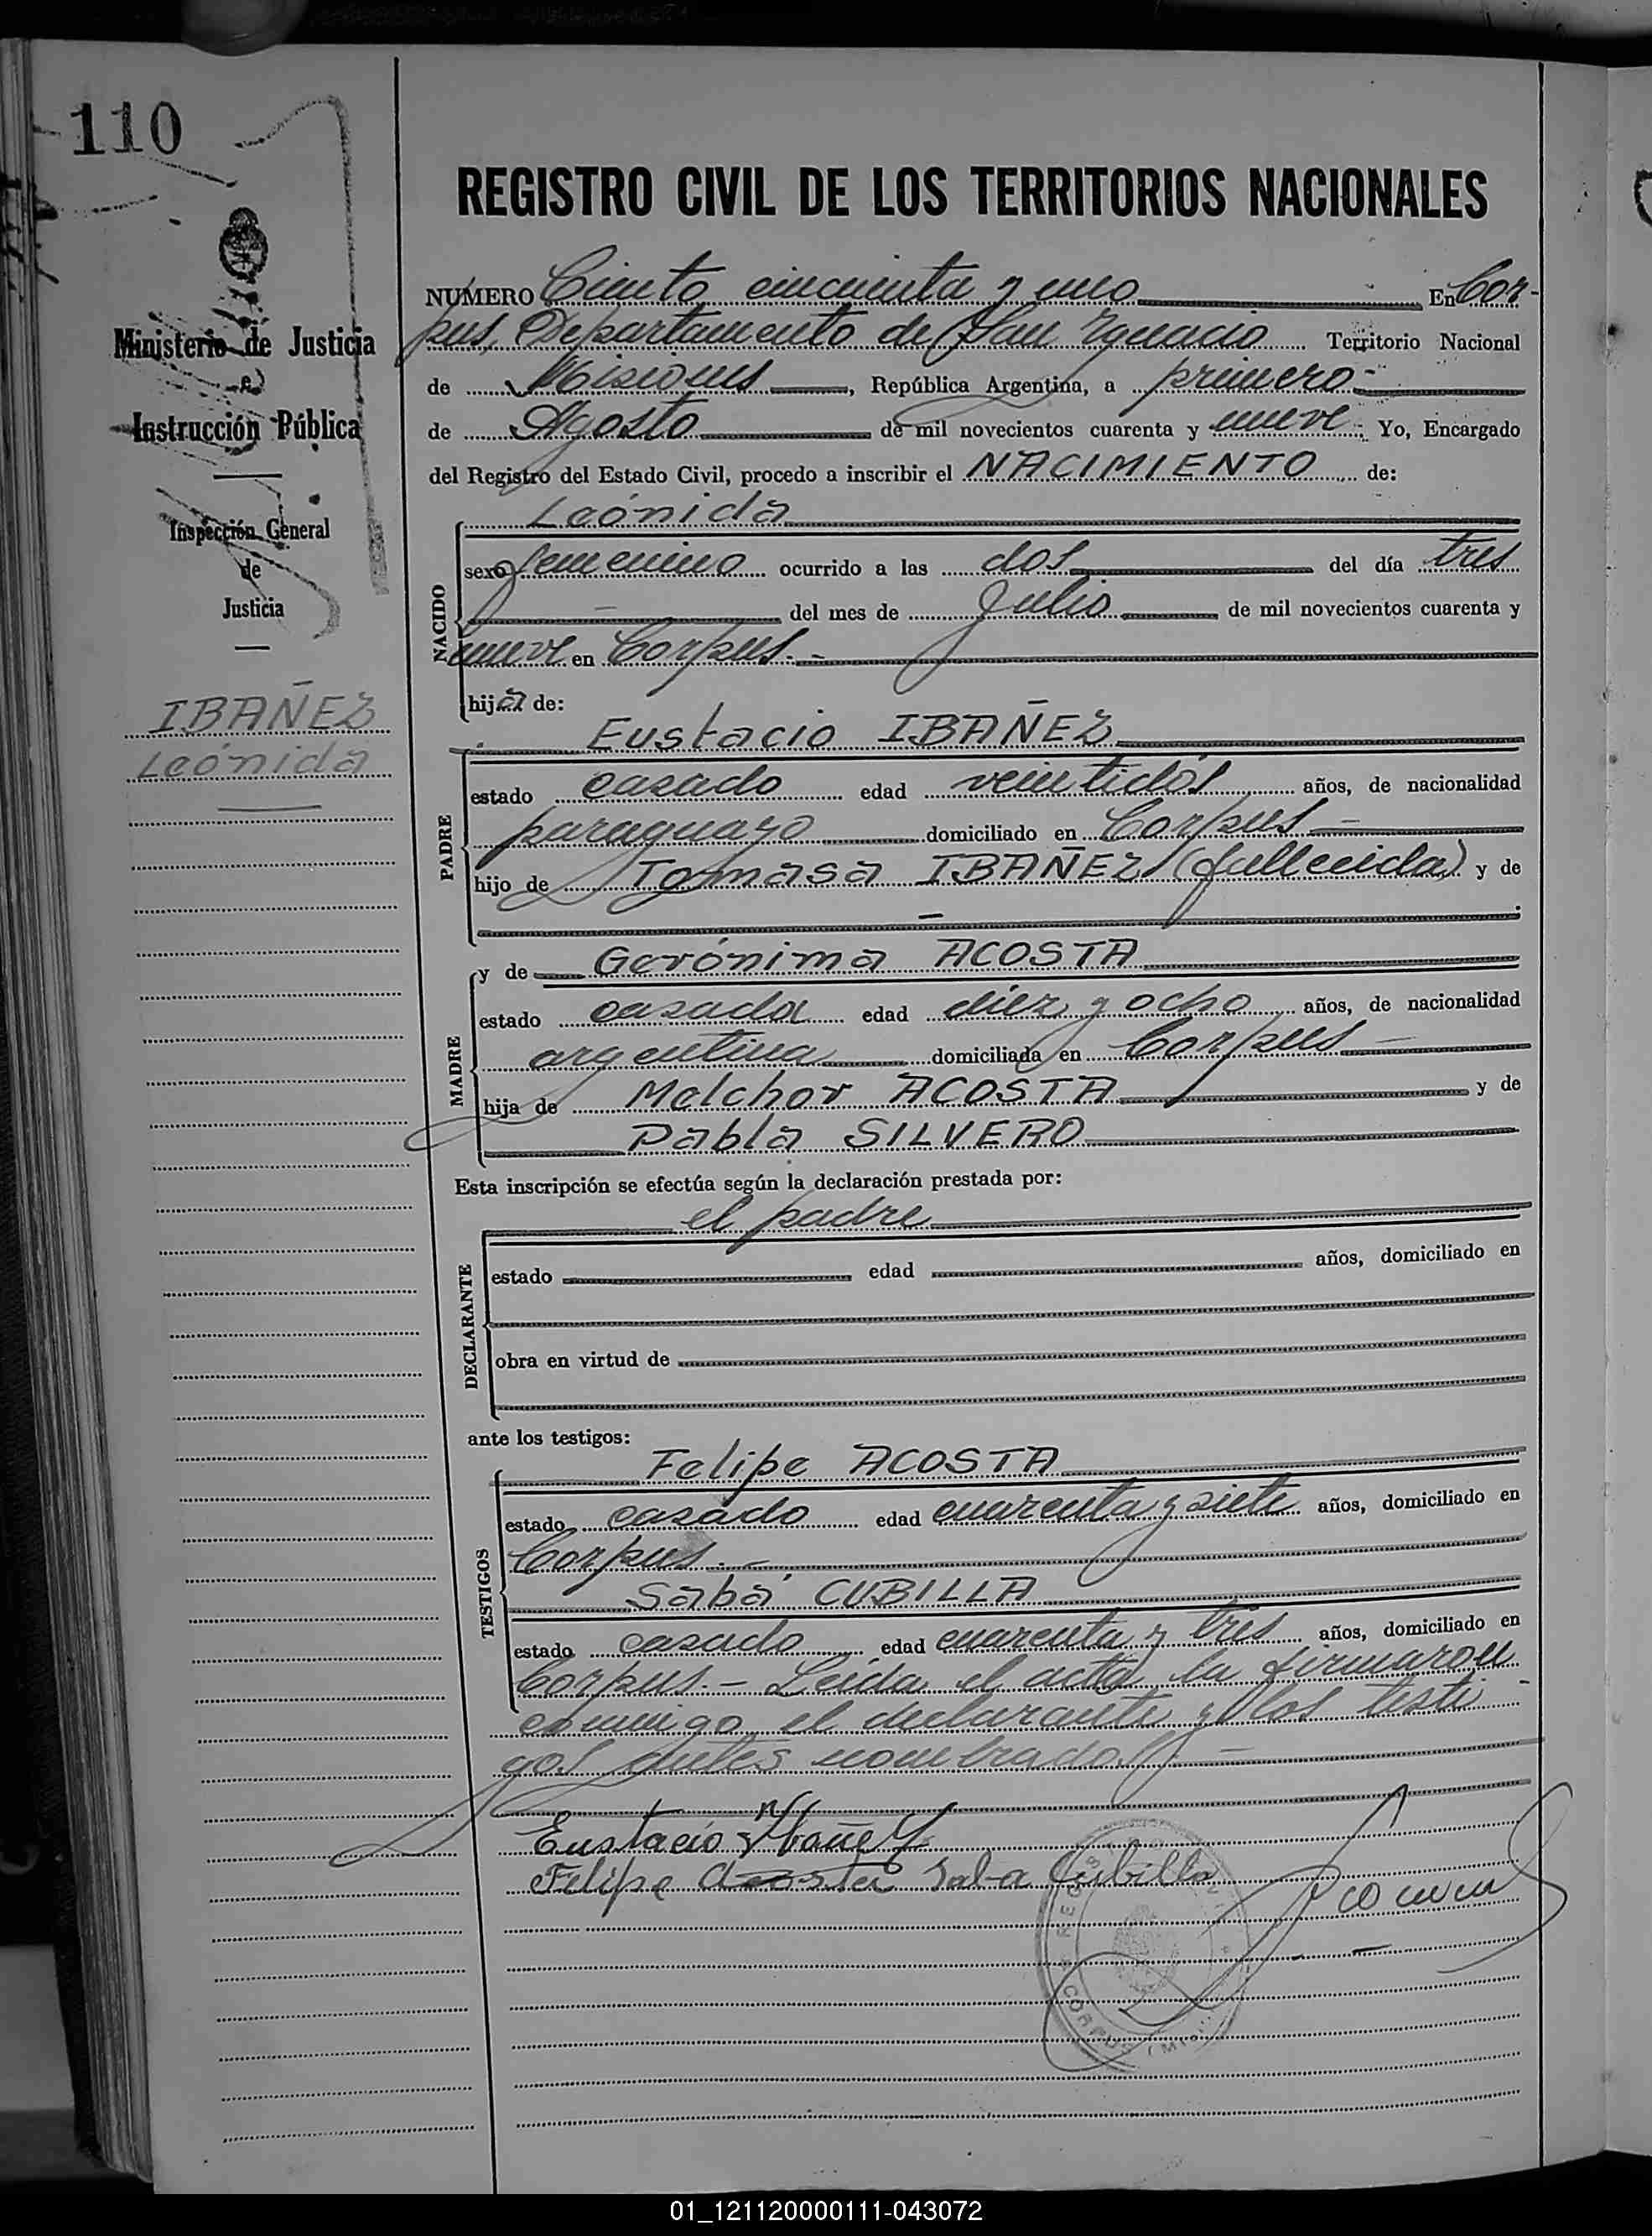 110
Ministerio de Justicia
e
Instrucción Pública
Inspección General
de
Justicia
IBAÑEZ
Leónida
REGISTRO CIVIL DE LOS TERRITORIOS NACIONALES
NÚMERO Ciento cincuenta y uno En Cor-
pus, Departamento de San Ignacio Territorio Nacional
de Misiones, República Argentina, a primero
de Agosto de mil novecientos cuarenta y nueve Yo, Encargado
del Registro del Estado Civil, procedo a inscribir el NACIMIENTO de:
NACIDO
Leónida
sexo femenino ocurrido a las dos del día tres
del mes de Julio de mil novecientos cuarenta y
nueve en Corpus.-
hija de:
PADRE
Eustacio IBAÑEZ
estado casado edad veintidós años, de nacionalidad
paraguayo domiciliado en Corpus
hijo de Tomasa IBAÑEZ (fallecida) y de
MADRE
y de Gerónima ACOSTA
estado casada edad diez y ocho años, de nacionalidad
argentina domiciliada en Corpus
hija de Melchor ACOSTA y de
Pabla SILVERO
Esta inscripción se efectúa según la declaración prestada por:
DECLARANTE
el padre
estado edad años, domiciliado en
obra en virtud de
ante los testigos:
TESTIGOS
Felipe ACOSTA
estado casado edad cuarenta y siete años, domiciliado en
Corpus.-
Sabá CUBILLA
estado casado edad cuarenta y tres años, domiciliado en
Corpus.- Leída el acta la firmaron
conmigo el declarante y los testi-
gos antes nombrados.-
Eustacio Ybañez
Felipe Acosta Saba Cubilla
01_121120000111-043072